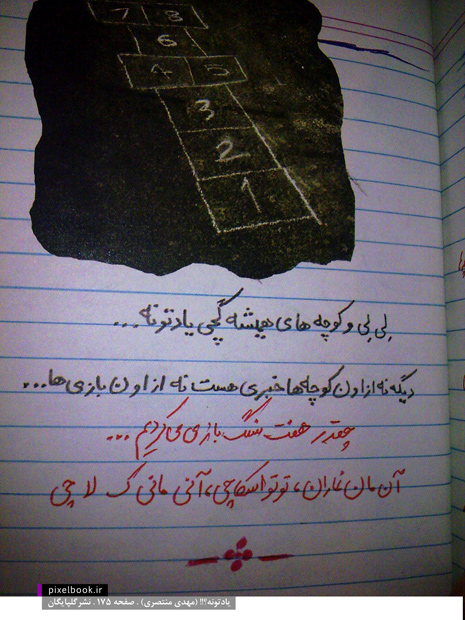 7 8
6
4 5
3
2
1
لِی لِی و کوچه های همیشه گچی یادتونه...
دیگه نه از اون کوچه‌ها خبری هست نه از اون بازی ها...
چقدر هفت سنگ بازی می کردیم...
آن مان نماران، تو تو اسکاچی، آنی مانی ک لا چی
pixelbook.ir
یادتونه؟! (مهدی منتصری) . صفحه ۱۷۵ . نشر گلپایگان